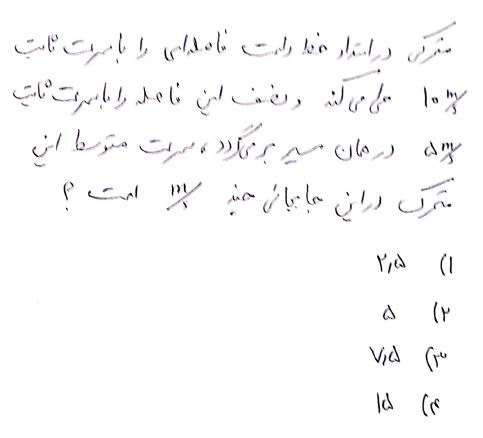 متحرکی در امتداد خط راست فاصله‌ای را با سرعت ثابت
۱۰ m/s طی می‌کند و نصف این فاصله را با سرعت ثابت
۵ m/s در همان مسیر برمی‌گردد، سرعت متوسط این
متحرک در این جابجائی چند m/s است ؟
۱) ۲,۵
۲) ۵
۳) ۷,۵
۴) ۱۵